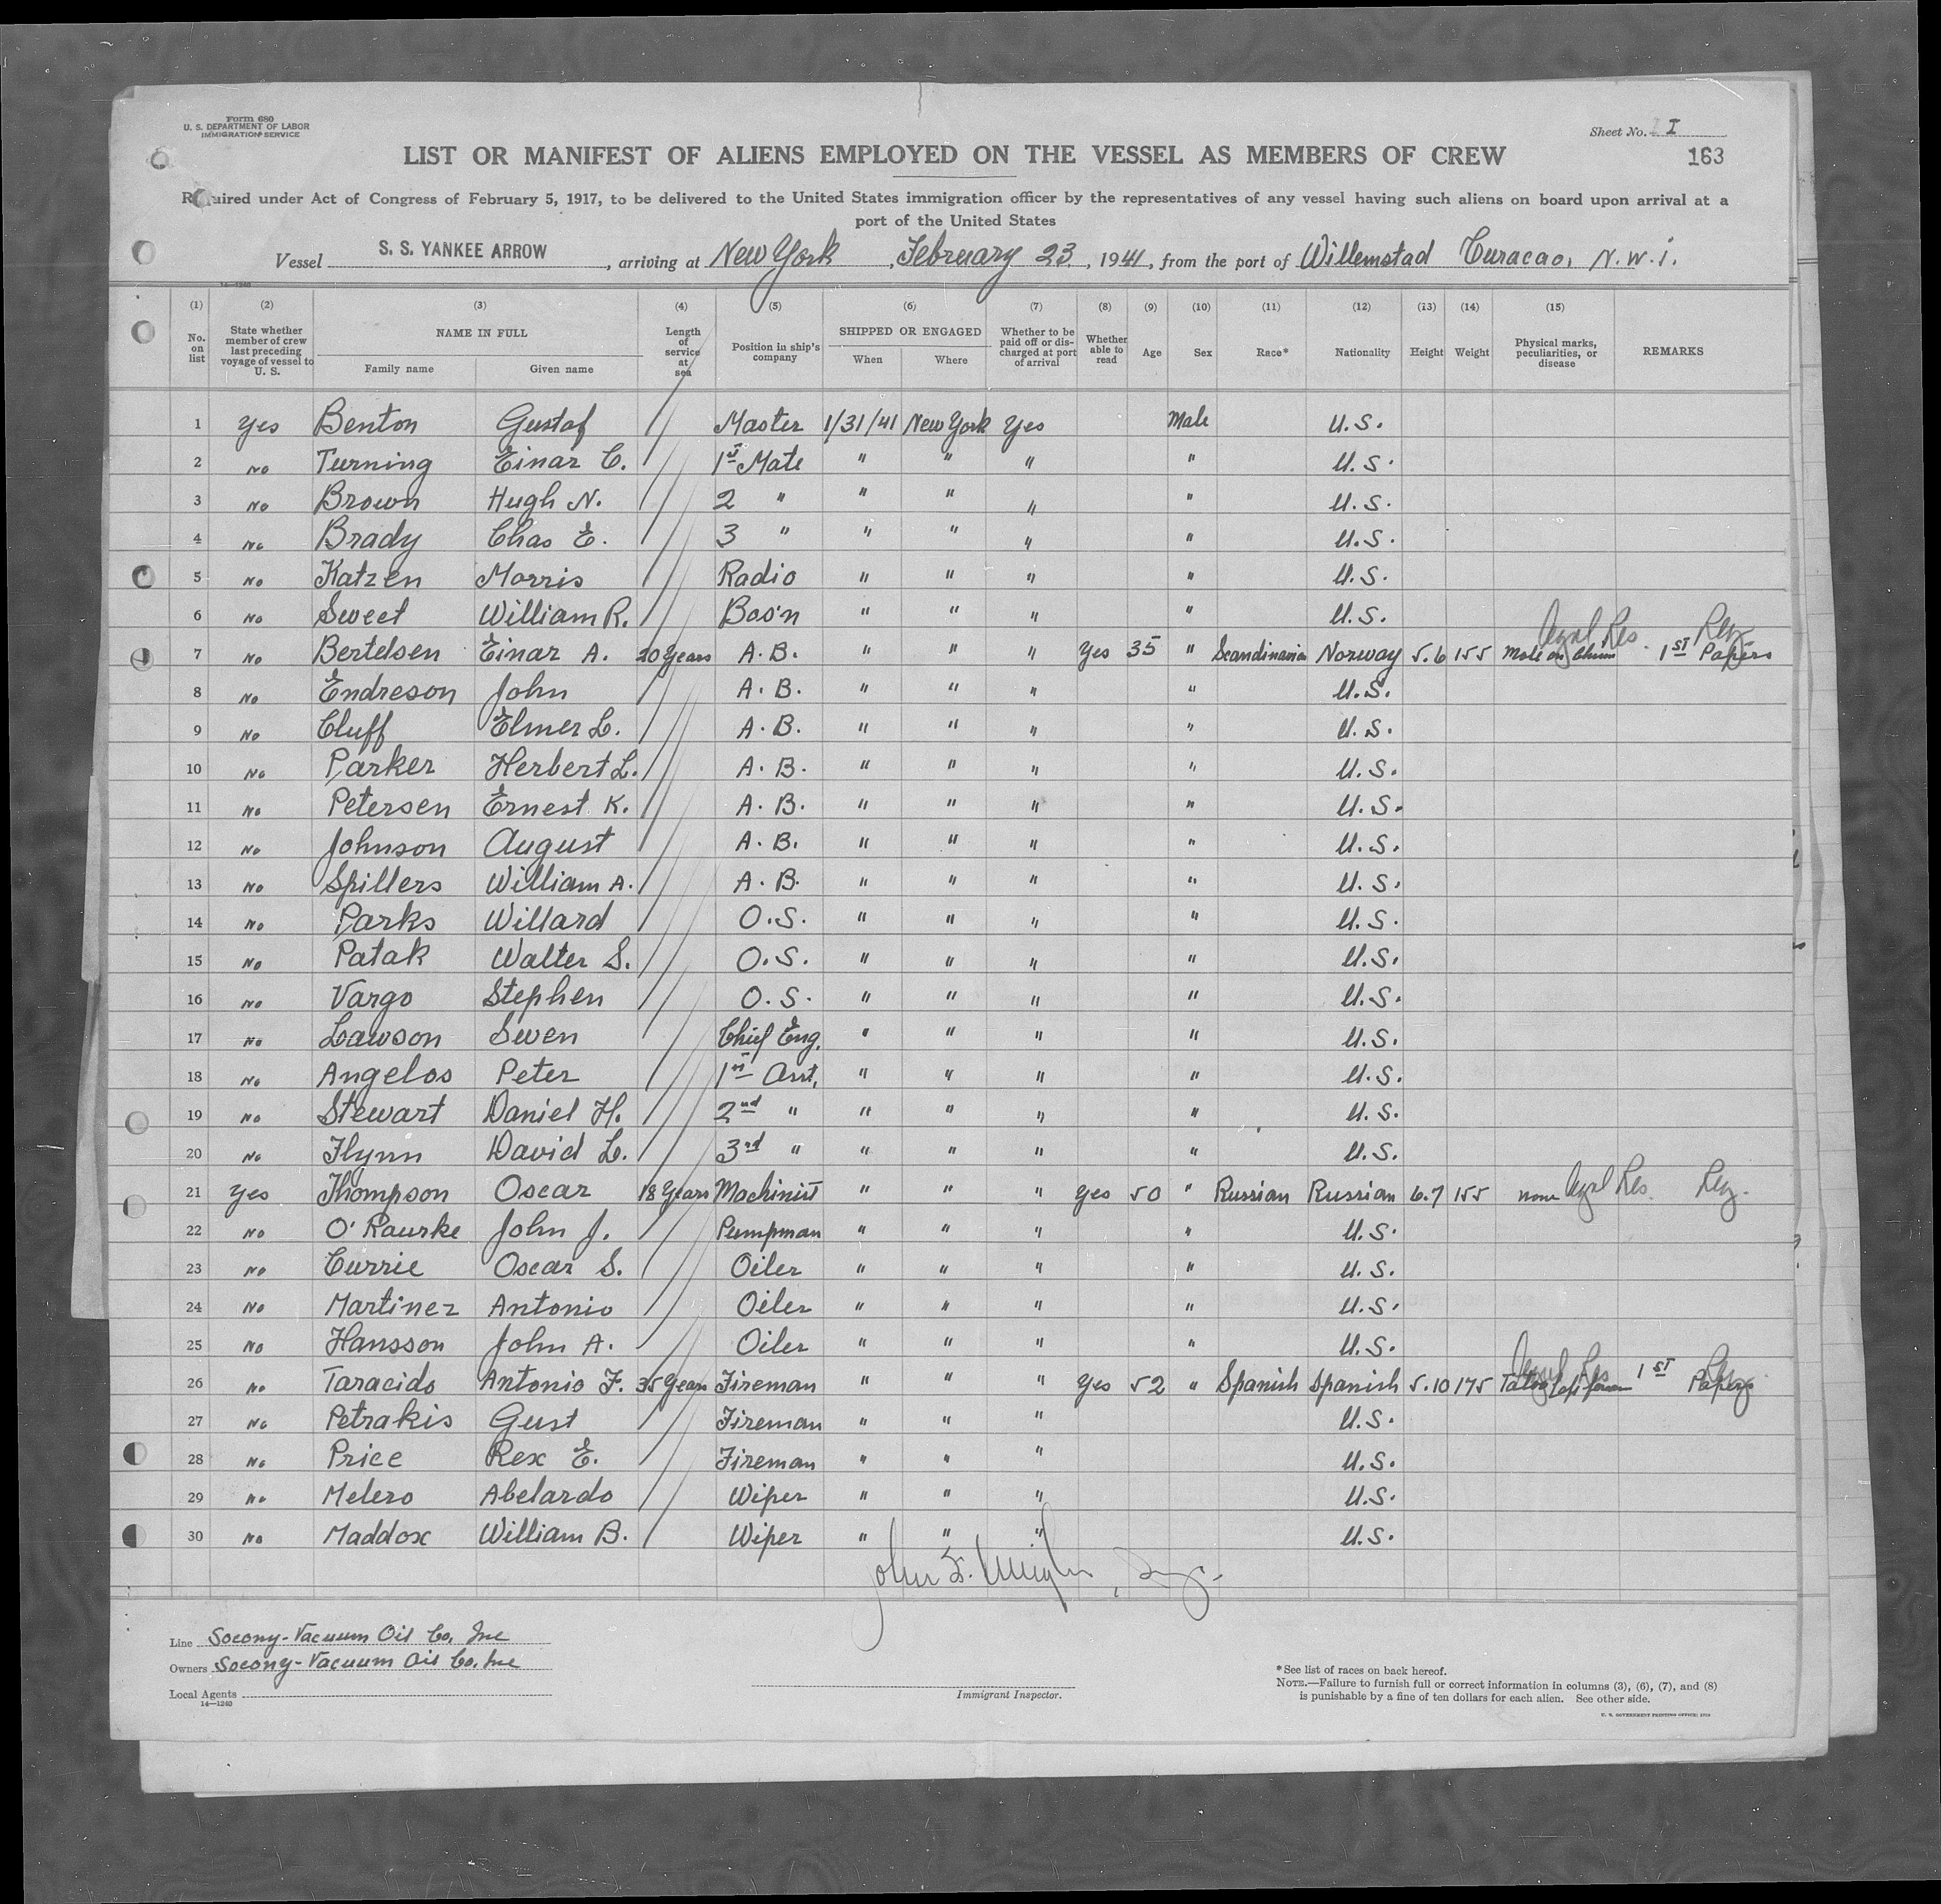 Form 680
U. S. DEPARTMENT OF LABOR
IMMIGRATION SERVICE
Sheet No. I
LIST OR MANIFEST OF ALIENS EMPLOYED ON THE VESSEL AS MEMBERS OF CREW
163
Required under Act of Congress of February 5, 1917, to be delivered to the United States immigration officer by the representatives of any vessel having such aliens on board upon arrival at a
port of the United States
Vessel S. S. YANKEE ARROW, arriving at New York, February 23, 1941, from the port of Willemstad Curacao, N.W.I.
14—1240
(1) (2) (3) (4) (5) (6) (7) (8) (9) (10) (11) (12) (13) (14) (15)
No. on list State whether member of crew last preceding voyage of vessel to U. S. NAME IN FULL Family name Given name Length of service at sea Position in ship's company SHIPPED OR ENGAGED When Where Whether to be paid off or discharged at port of arrival Whether able to read Age Sex Race* Nationality Height Weight Physical marks, peculiarities, or disease REMARKS
1 Yes Benton Gustaf Master 1/31/41 New York Yes Male U.S.
2 No Turning Einar C. 1st Mate " " " " U.S.
3 No Brown Hugh N. 2 " " " " " U.S.
4 No Brady Chas E. 3 " " " " " U.S.
5 No Katzen Morris Radio " " " " U.S.
6 No Sweet William R. Bos'n " " " " U.S.
7 No Bertelsen Einar A. 20 Years A.B. " " " Yes 35 " Scandinavian Norway 5.6 155 Mole on Chin Legal Res. 1st Papers Reg.
8 No Endreson John A.B. " " " " U.S.
9 No Cluff Elmer L. A.B. " " " " U.S.
10 No Parker Herbert L. A.B. " " " " U.S.
11 No Petersen Ernest K. A.B. " " " " U.S.
12 No Johnson August A.B. " " " " U.S.
13 No Spillers William A. A.B. " " " " U.S.
14 No Parks Willard O.S. " " " " U.S.
15 No Patak Walter S. O.S. " " " " U.S.
16 No Vargo Stephen O.S. " " " " U.S.
17 No Lawson Swen Chief Eng. " " " " U.S.
18 No Angelos Peter 1st Asst. " " " " U.S.
19 No Stewart Daniel H. 2nd " " " " " U.S.
20 No Flynn David L. 3rd " " " " " U.S.
21 Yes Thompson Oscar 18 Years Machinist " " " Yes 50 " Russian Russian 6.7 155 none Legal Res. Reg.
22 No O'Raurke John J. Pumpman " " " " U.S.
23 No Currie Oscar S. Oiler " " " " U.S.
24 No Martinez Antonio Oiler " " " " U.S.
25 No Hansson John A. Oiler " " " " U.S.
26 No Taracido Antonio F. 35 Years Fireman " " " Yes 52 " Spanish Spanish 5.10 175 Legal Res 1st Papers Reg.
27 No Petrakis Gust Fireman " " " U.S.
28 No Price Rex E. Fireman " " " U.S.
29 No Melero Abelardo Wiper " " " U.S.
30 No Maddox William B. Wiper " " " U.S.
Line Socony-Vacuum Oil Co, Inc
Owners Socony-Vacuum Oil Co. Inc
Local Agents
14—1240
Immigrant Inspector.
*See list of races on back hereof.
NOTE.—Failure to furnish full or correct information in columns (3), (6), (7), and (8)
is punishable by a fine of ten dollars for each alien. See other side.